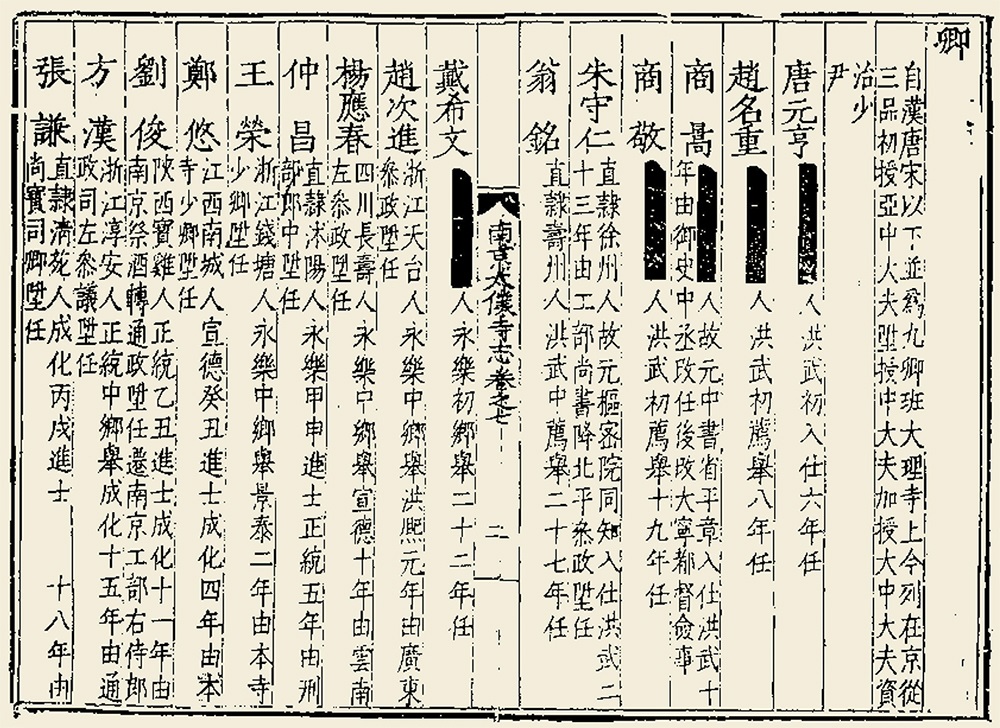 卿
自漢唐宋以下並爲九卿班大理寺上今列在京從
三品初授亞中大夫陞授中大夫加授大中大夫資
治少
尹
唐元亨 人洪武初入仕六年任
趙名重 人洪武初薦舉八年任
商暠 人故元中書省平章入仕洪武十
年由御史中丞改任後改大寧都督僉事
商敬 人洪武初薦舉十九年任
朱守仁 直隸徐州人故元樞密院同知入仕洪武二
十三年由工部尚書降北平叅政陞任
翁銘 直隸壽州人洪武中薦舉二十七年任
南京太僕寺志卷之七 二
戴希文 人永樂初鄉舉二十二年任
趙次進 浙江天台人永樂中鄉舉洪熙元年由廣東
叅政陞任
楊應春 四川長壽人永樂中鄉舉宣德十年由雲南
左叅政陞任
仲昌 直隸沭陽人永樂甲申進士正統五年由刑
部郎中陞任
王榮 浙江錢塘人永樂中鄉舉景泰二年由本寺
少卿陞任
鄭悠 江西南城人宣德癸丑進士成化四年由本
寺少卿陞任
劉俊 陝西寶雞人正統乙丑進士成化十一年由
南京祭酒轉通政陞任遷南京工部右侍郎
方漢 浙江淳安人正統中鄉舉成化十五年由通
政司左叅議陞任
張謙 直隸清苑人成化丙戌進士 十八年由
尚寶司卿陞任